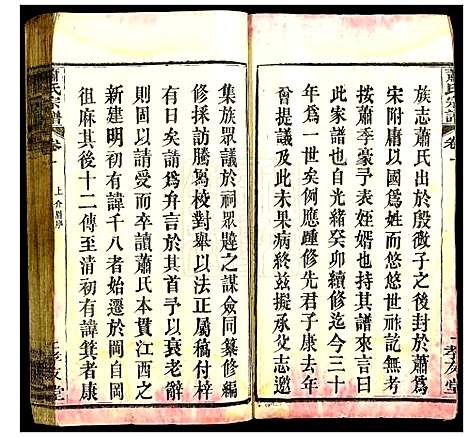 蕭氏宗譜
卷一
一
孝友堂
族志蕭氏出於殷微子之後封於蕭為
宋附庸以國為姓而悠悠世祚訖無考
按蕭季豪予表姪婿也持其譜來言曰
此家譜也自光緒癸卯續修迄今三十
年為一世矣例應踵修先君子康去年
曾提議及此未果病終茲擬承父志邀
集族眾議於祠眾韙之謀僉同纂修編
修採訪騰寫校對舉以法正屬稿付梓
有日矣請為弁言於其首予以衰老辭
則固以請受而卒讀蕭氏本貫江西之
新建明初有諱千八者始遷於岡自岡
徂麻其後十二傳至清初有諱箕者康
蕭氏宗譜
卷一
上
孝友堂